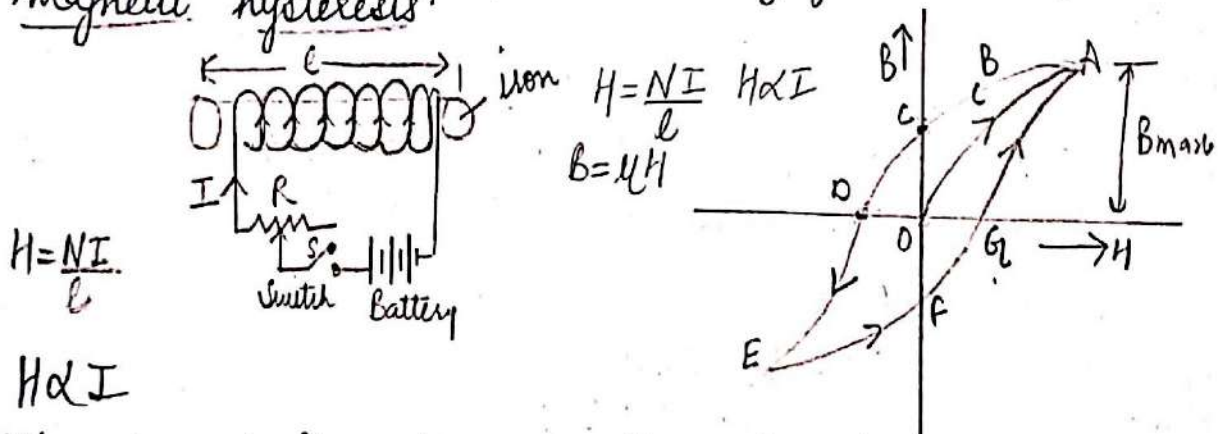 magnetic hysteresis
l
iron
H=NI/l H∝I
B=μH
I
R
S
Switch
Battery
H=NI/l
H∝I
B↑
B
A
C
L
Bmax
D
O
G
→H
F
E